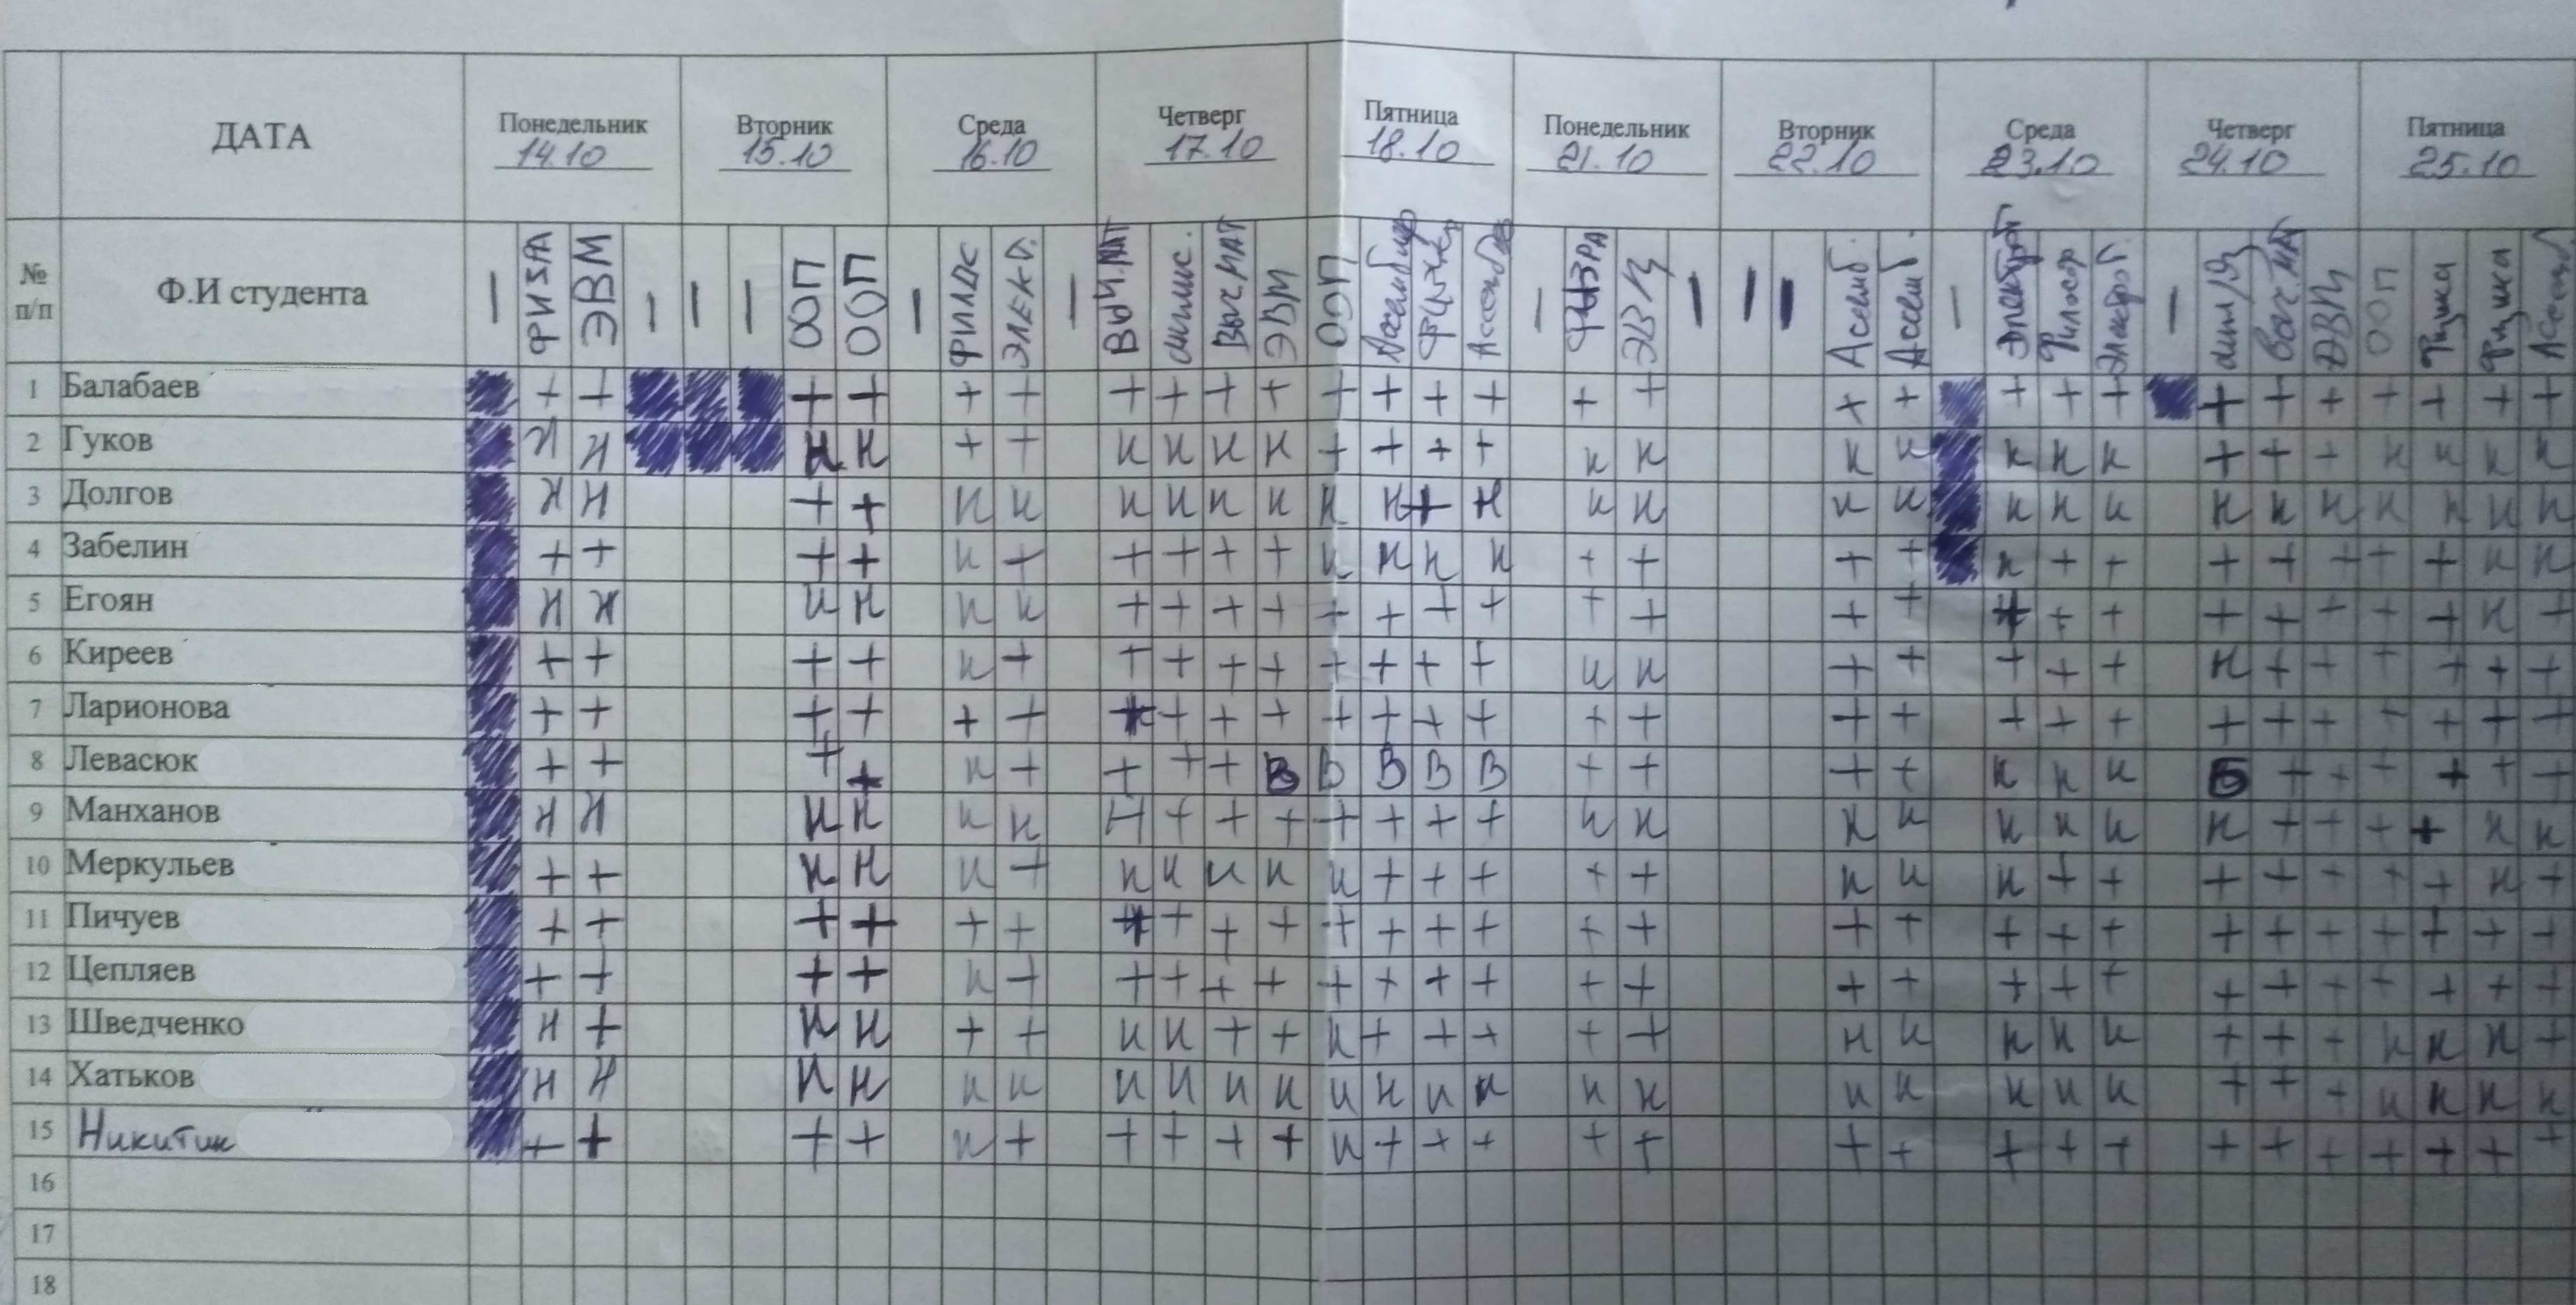 ДАТА Понедельник 14.10 Вторник 15.10 Среда 16.10 Четверг 17.10 Пятница 18.10 Понедельник 21.10 Вторник 22.10 Среда 23.10 Четверг 24.10 Пятница 25.10
№ п/п Ф.И студента — ФИЗРА ЭВМ — — — ООП ООП — ФИЛОС ЭЛЕКТ. — ВЫЧ.МАТ Выч.МАТ ЭВМ ООП Ассемблер Физика Ассембл — ФИЗРА ЭВМ — — — Асемб. Ассемб. — Электрот Философ Электрот. — Выч.мат ЭВМ ООП Физика Физика Ассемб
1 Балабаев + + + + + + + + + + + + + + + + + + + + + + + + + + + +
2 Гуков н н н н + + н н н н + + + + н н н н н н н + + + н н н н
3 Долгов н н + + н н н н н н н н + н н н н н н н н н н н н н н н
4 Забелин + + + + н + + + + + н н н н + + + + н + + + + + + + н н
5 Егоян н н н н н н + + + + + + + + + + + + + + + + + + + + н +
6 Киреев + + + + н + + + + + + + + + н н + + + + + н + + + + + +
7 Ларионова + + + + + + + + + + + + + + + + + + + + + + + + + + + +
8 Левасюк + + + + н + + + + В В В В В + + + + н н н Б + + + + + +
9 Манханов н н н н н н н + + + + + + + н н н н н н н н + + + + н н
10 Меркульев + + н н н + н н н н н + + + + + н н н + + + + + + + н +
11 Пичуев + + + + + + + + + + + + + + + + + + + + + + + + + + + +
12 Цепляев + + + + н + + + + + + + + + + + + + + + + + + + + + + +
13 Шведченко н + н н + + н н + + н + + + + + н н н н н + + + н н н +
14 Хатьков н н н н н н н н н н н н н н н н н н н н н + + + н н н н
15 Никитин + + + + н + + + + + н + + + + + + + + + + + + + + + + +
16
17
18